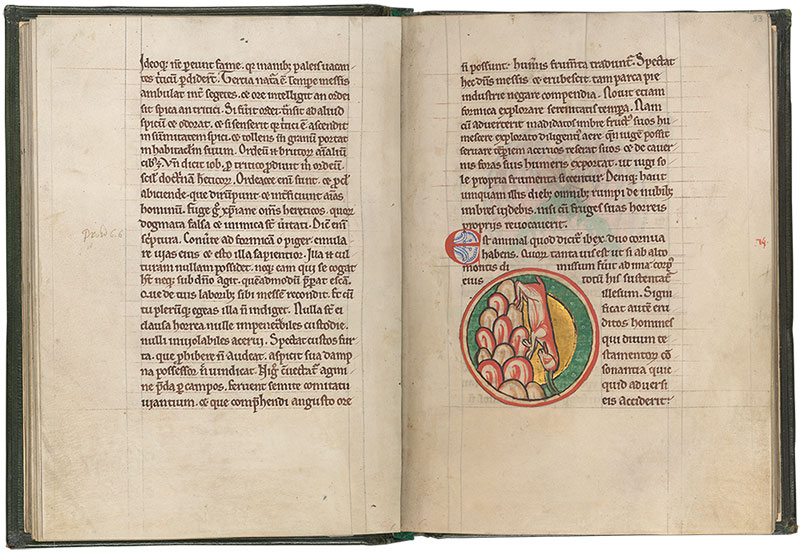 Ideoq; nͤ pereunt fame. q; in manib; paleis uacan
tes t'ticū p'didert̄. Tercia natā ē. Tempe messis
ambulat int̄ segetes. ⁊ ore intelligit an ordei
sit spica an tritici. Si fūit ordei. t̄nsit ad aliud
spicū ⁊ odorat. ⁊ si senserit qͥ t'tici ē ascendit
in sūmitatem spici. ⁊ tollens in granū portat
in habitaclm suum. Ordeū ē brutor; aīaliū
cib;. Vn̄ dicit iob. p tritico pdiuit m̄ ordeū.
scił doctͥnā heticor;. Ordeacee eni sunt. ⁊ pcł
abiciende. que dirūpunt ⁊ intficiunt aīas
hominū. Fuge g xp̄iane om̄s hereticos. quor;
dogmata falsa ⁊ inimica st̄ uitati. Dic̄ eni
sc̄ptura. Confre ad formicā o piger. emula
re uias ei; ⁊ esto illa sapientior. Illa n̄ cul
turam nullam possidet. neq; eam qui se cogat
ht̄ neq; sub dn̄o agit. quēadmodū p̄parat escā.
que de tuis laborib; sibi messem recondit. Et cū
tu plerūq; egeas illa n̄ indiget. Nulla st̄ ei
clausa horrea. nulle impenetbiles custodie.
nulli inuiolabiles acerui. Spectat custos fur
ta. que phibere n̄ audeat. aspicit sua damp
na possessor. n̄ uindicat.
p̄da p campos. feruent semite comitatu
uiantium. ⁊ que comp̄hendi angusto ore
n̄ possunt. humis frum̄ta tradunt̄. Spectat
hec dn̄s messis ⁊ erubescit. tam parca pie
industrie negare compendia. Nouit etiam
formica explorare serenitatis tempa. Nam
cū aduerterit madidatos imbre fruct; suos hu
mescere explorato diligentī aere. qn̄ iugē possit
seruare tempiem aceruos reserat suos ⁊ de cauer
nis foras suis humeris exportat. ut iugi so
le propria frumenta siccentur. Deniq; haut
umquam illis dieb; omnib; rumpi de nubib;
imbres uidebis. nisi cū fruges suas horreis
proprijs reuocauerit.
Est animal quod dicit̄ ibex. duo cornua
habens. quor; tanta uis est ut si ab alto
montis dimissum fuit ad ima. corp;
eius totū his sustentat̄
illesum. Signi
ficat autē eru
ditos homines
qui diuinū te
stamentor; cō
sonantia quic
quid aduersi
eis acciderit: